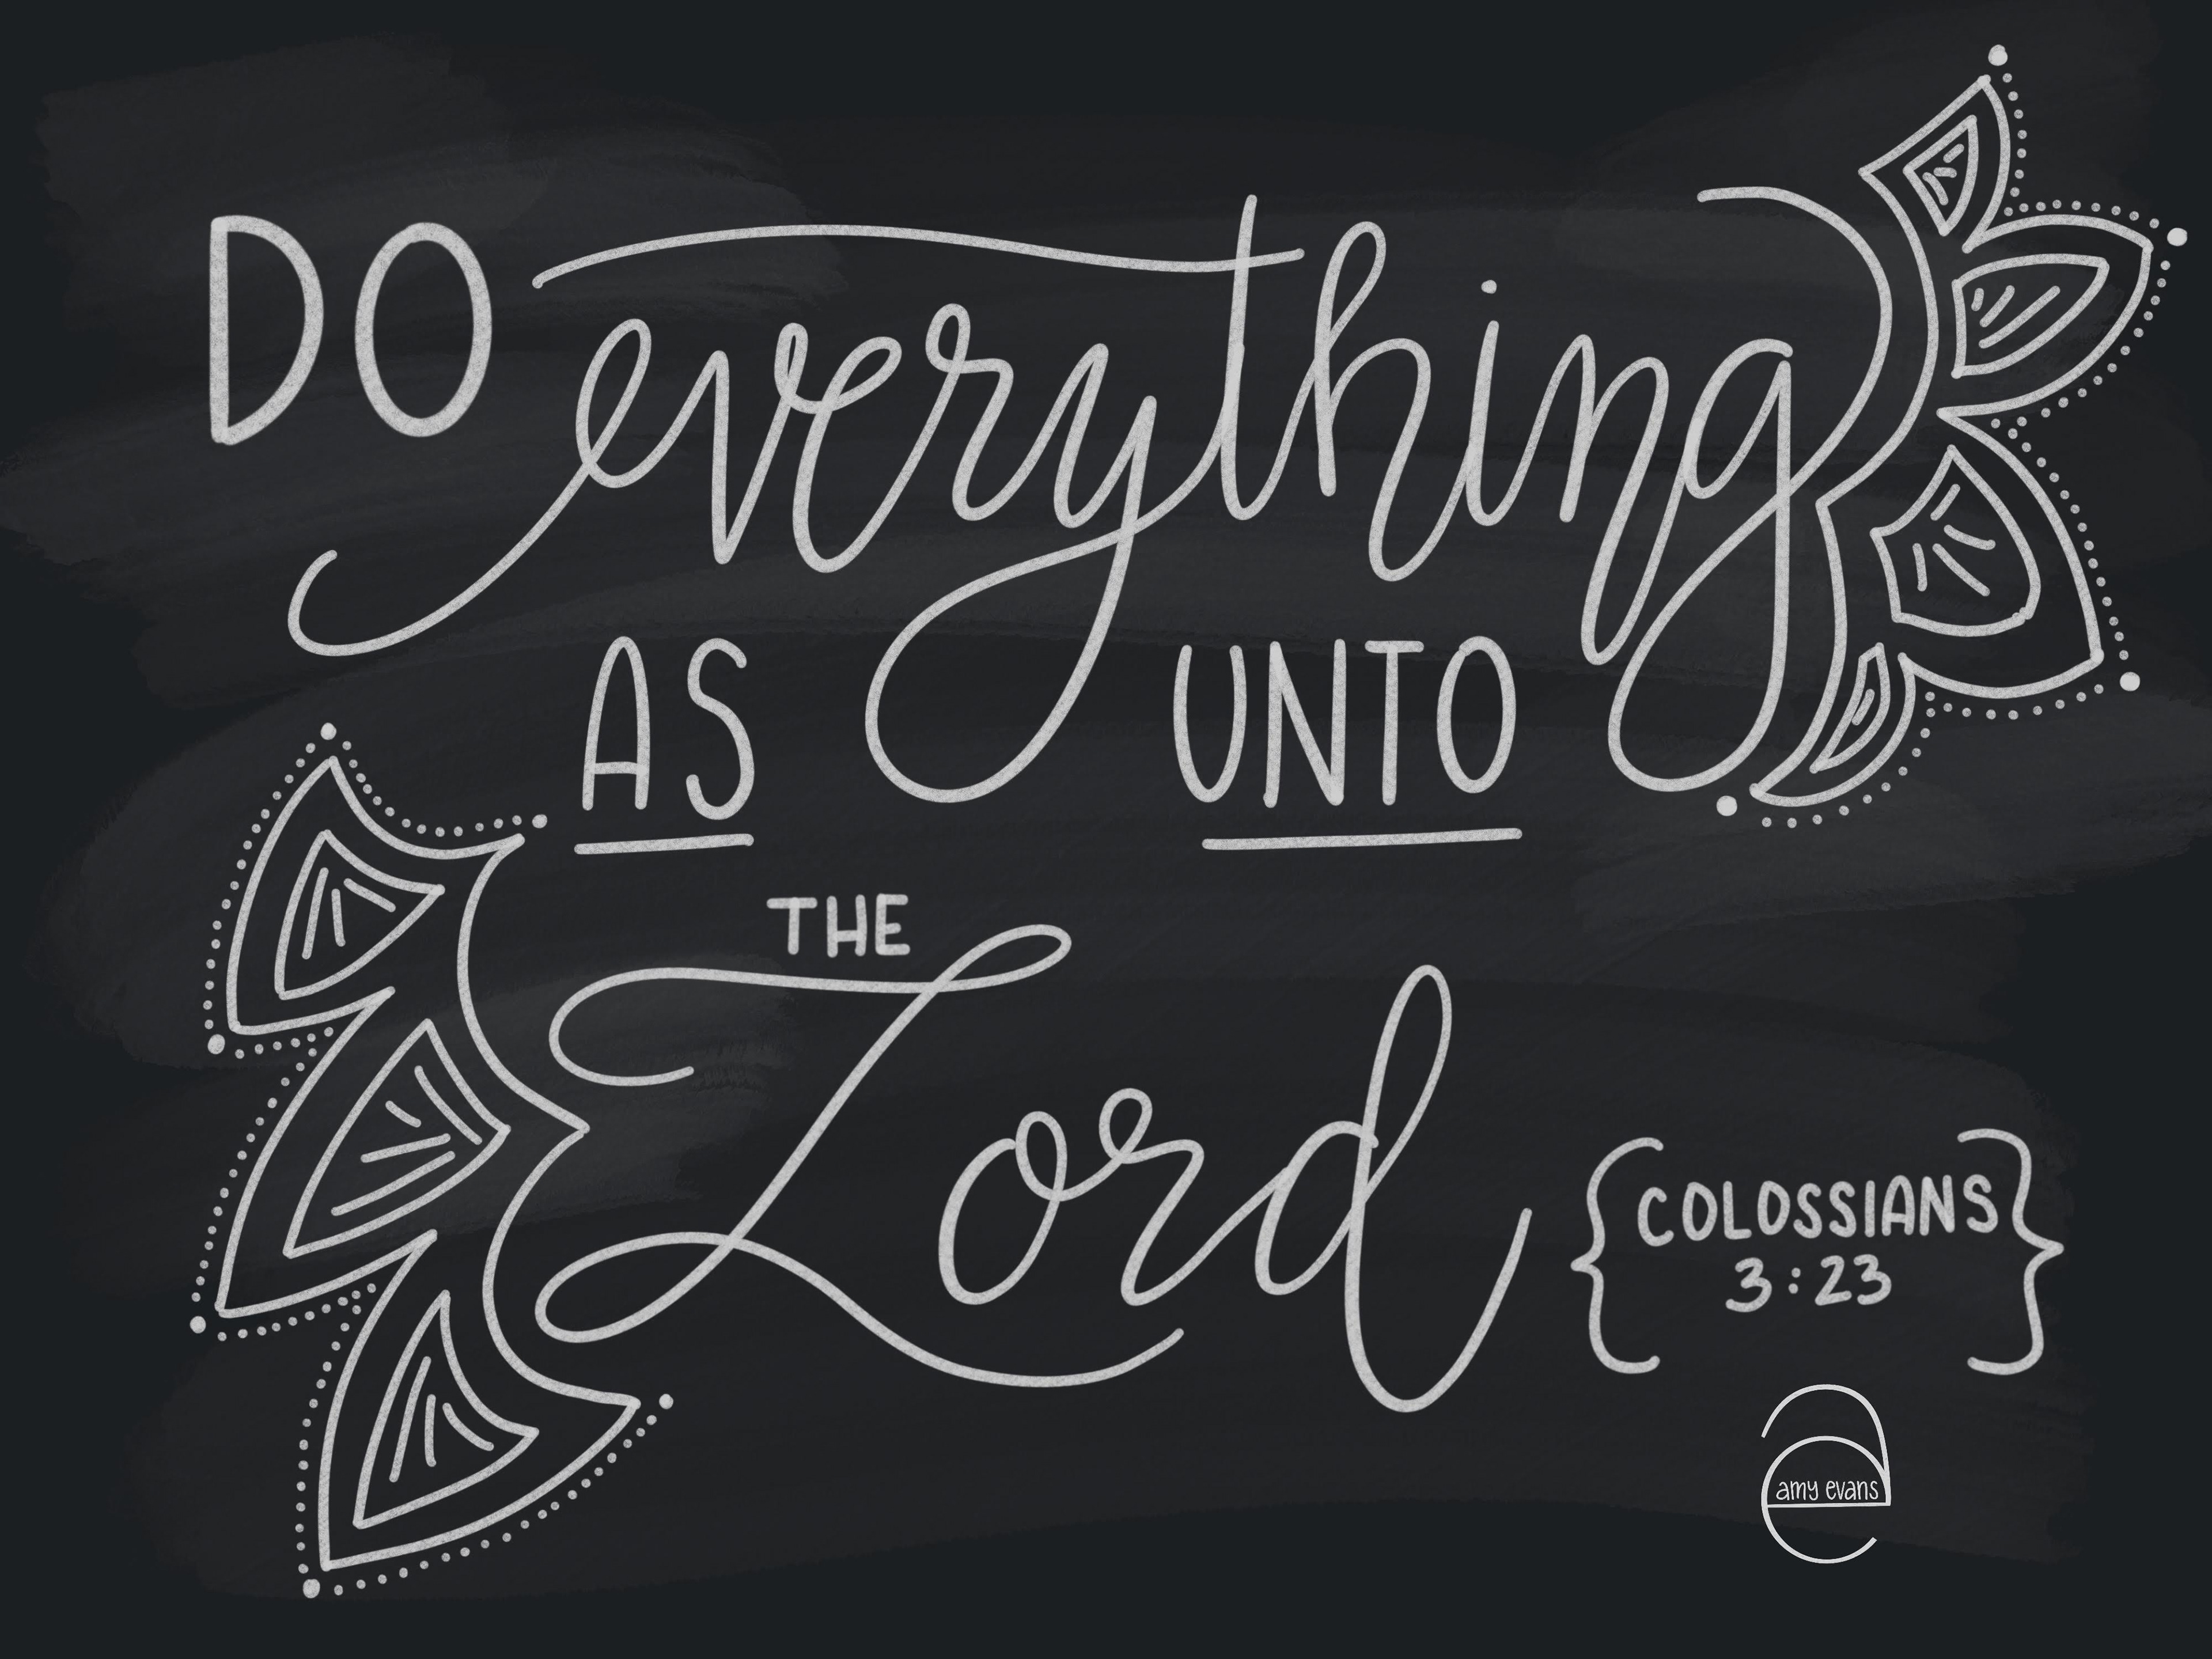 DO everything
AS UNTO
THE
Lord
{COLOSSIANS
3:23}
amy evans